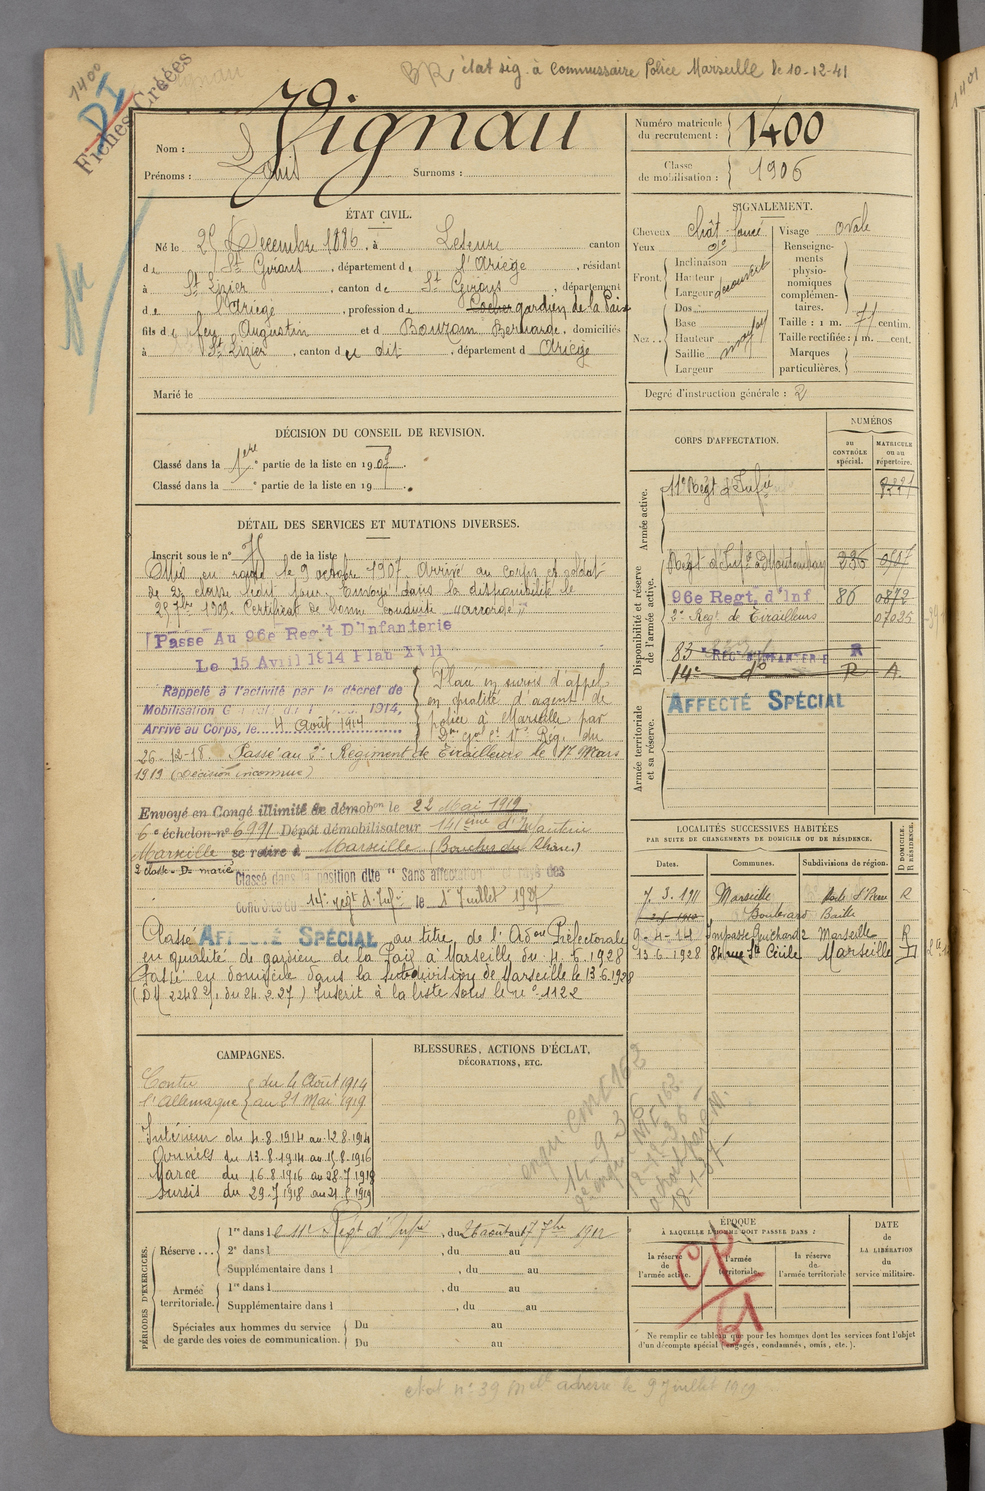 BR état sig. à Commissaire Police Marseille le 10-12-41
1400
DI
Fiches Créées
Nom : Vignau
Prénoms : Louis Surnoms :
Numéro matricule du recrutement : 1400
Classe de mobilisation : 1906
ÉTAT CIVIL.
Né le 25 Décembre 1886, à canton
de St Girons, département de l'Ariège, résidant
à St Lizier, canton de St Girons, département
de l'Ariège, profession de Cocher gardien de la Paix
fils de feu Augustin et de Bouzom Bernarde, domiciliés
à St Lizier, canton du dit, département d Ariège
Marié le
SIGNALEMENT.
Cheveux chât. foncé
Yeux do
Front. Inclinaison
Hauteur
Largeur découvert
Nez.. Dos
Base
Hauteur moyen
Saillie
Largeur
Visage ovale
Renseignements physionomiques complémentaires.
Taille : 1 m. 71 centim.
Taille rectifiée : 1 m. cent.
Marques particulières.
Degré d'instruction générale : 2
DÉCISION DU CONSEIL DE REVISION.
Classé dans la 1ère partie de la liste en 1907.
Classé dans la e partie de la liste en 19 .
DÉTAIL DES SERVICES ET MUTATIONS DIVERSES.
Inscrit sous le n° 75 de la liste
Mis en route le 9 octobre 1907. Arrivé au corps et soldat
de 2e classe ledit jour. Envoyé dans la disponibilité le
25 7bre 1909. Certificat de bonne conduite "accordé"
Passé Au 96e Reg.t D'Infanterie
Le 15 Avril 1914 Plan XVII
Rappelé à l'activité par le décret de
Mobilisation Générale du 1 1914,
Arrivé au Corps, le 4 Août 1914
Placé en sursis d'appel
en qualité d'agent de
police à Marseille par
26-12-18. Passé au 2e Régiment de Tirailleurs le 17 Mars
1919 (Décision inconnue)
Envoyé en Congé illimité de démobon le 22 Mai 1919
6e échelon n° 6991 Dépôt démobilisateur 141ème d'Infanterie
Marseille se retire à Marseille (Bouches du Rhône)
2 classe - D- marié
Classé dans la position dite "Sans affectation" et rayé des
contrôles du 14e regt d'Infie le 1er Juillet 1927
Classé AFFECTÉ SPÉCIAL au titre de l'Adon Préfectorale
en qualité de gardien de la Paix à Marseille du 4.6.1928
Passé en domicile dans la subdivision de Marseille le 13.6.1928
(DM 2248 2/1 du 24.2.27) Inscrit à la liste sous le n° 1122
CORPS D'AFFECTATION.
NUMÉROS
au CONTRÔLE spécial.
MATRICULE ou au répertoire.
Armée active.
11e Régt d'Infie 9221
Disponibilité et réserve de l'armée active.
Régt d'Infie de Montauban 286
96e Regt. d'Inf 86 0872
2e Regt de Tirailleurs 07025
83e REGT D'INFANTERIE R
14e do R A.
AFFECTÉ SPÉCIAL
Armée territoriale et sa réserve.
LOCALITÉS SUCCESSIVES HABITÉES
PAR SUITE DE CHANGEMENTS DE DOMICILE OU DE RÉSIDENCE.
Dates. Communes. Subdivisions de région. D DOMICILE. R RÉSIDENCE.
7. 3. 1911 Marseille R
Boulevard Baille
9-4-14 Impasse Guichard 2 Marseille R
13.6.1928 84 rue Ste Cécile Marseille D
CAMPAGNES.
Contre l'Allemagne du 4 Août 1914 au 21 Mai 1919
Intérieur du 4.8.1914 au 12.8.1914
Armées du 13.8.1914 au 15.8.1916
Maroc du 16.8.1916 au 28.7.1918
Sursis du 29.7.1918 au 21.5.1919
BLESSURES, ACTIONS D'ÉCLAT, DÉCORATIONS, ETC.
PÉRIODES D'EXERCICES.
Réserve... 1re dans l e 11e Régt d'Infie, du 26 août au 17 7bre 1912
2e dans l , du au
Supplémentaire dans l , du au
Armée territoriale. 1re dans l , du au
Supplémentaire dans l , du au
Spéciales aux hommes du service de garde des voies de communication. Du au
Du au
ÉPOQUE
À LAQUELLE L'HOMME DOIT PASSER DANS :
la réserve de l'armée active.
l'armée territoriale.
la réserve de l'armée territoriale
DATE DE LA LIBÉRATION du service militaire.
CP
61
Ne remplir ce tableau que pour les hommes dont les services font l'objet
d'un décompte spécial (engagés, condamnés, omis, etc.).
état n° 39 adresse le 9 Juillet 1919